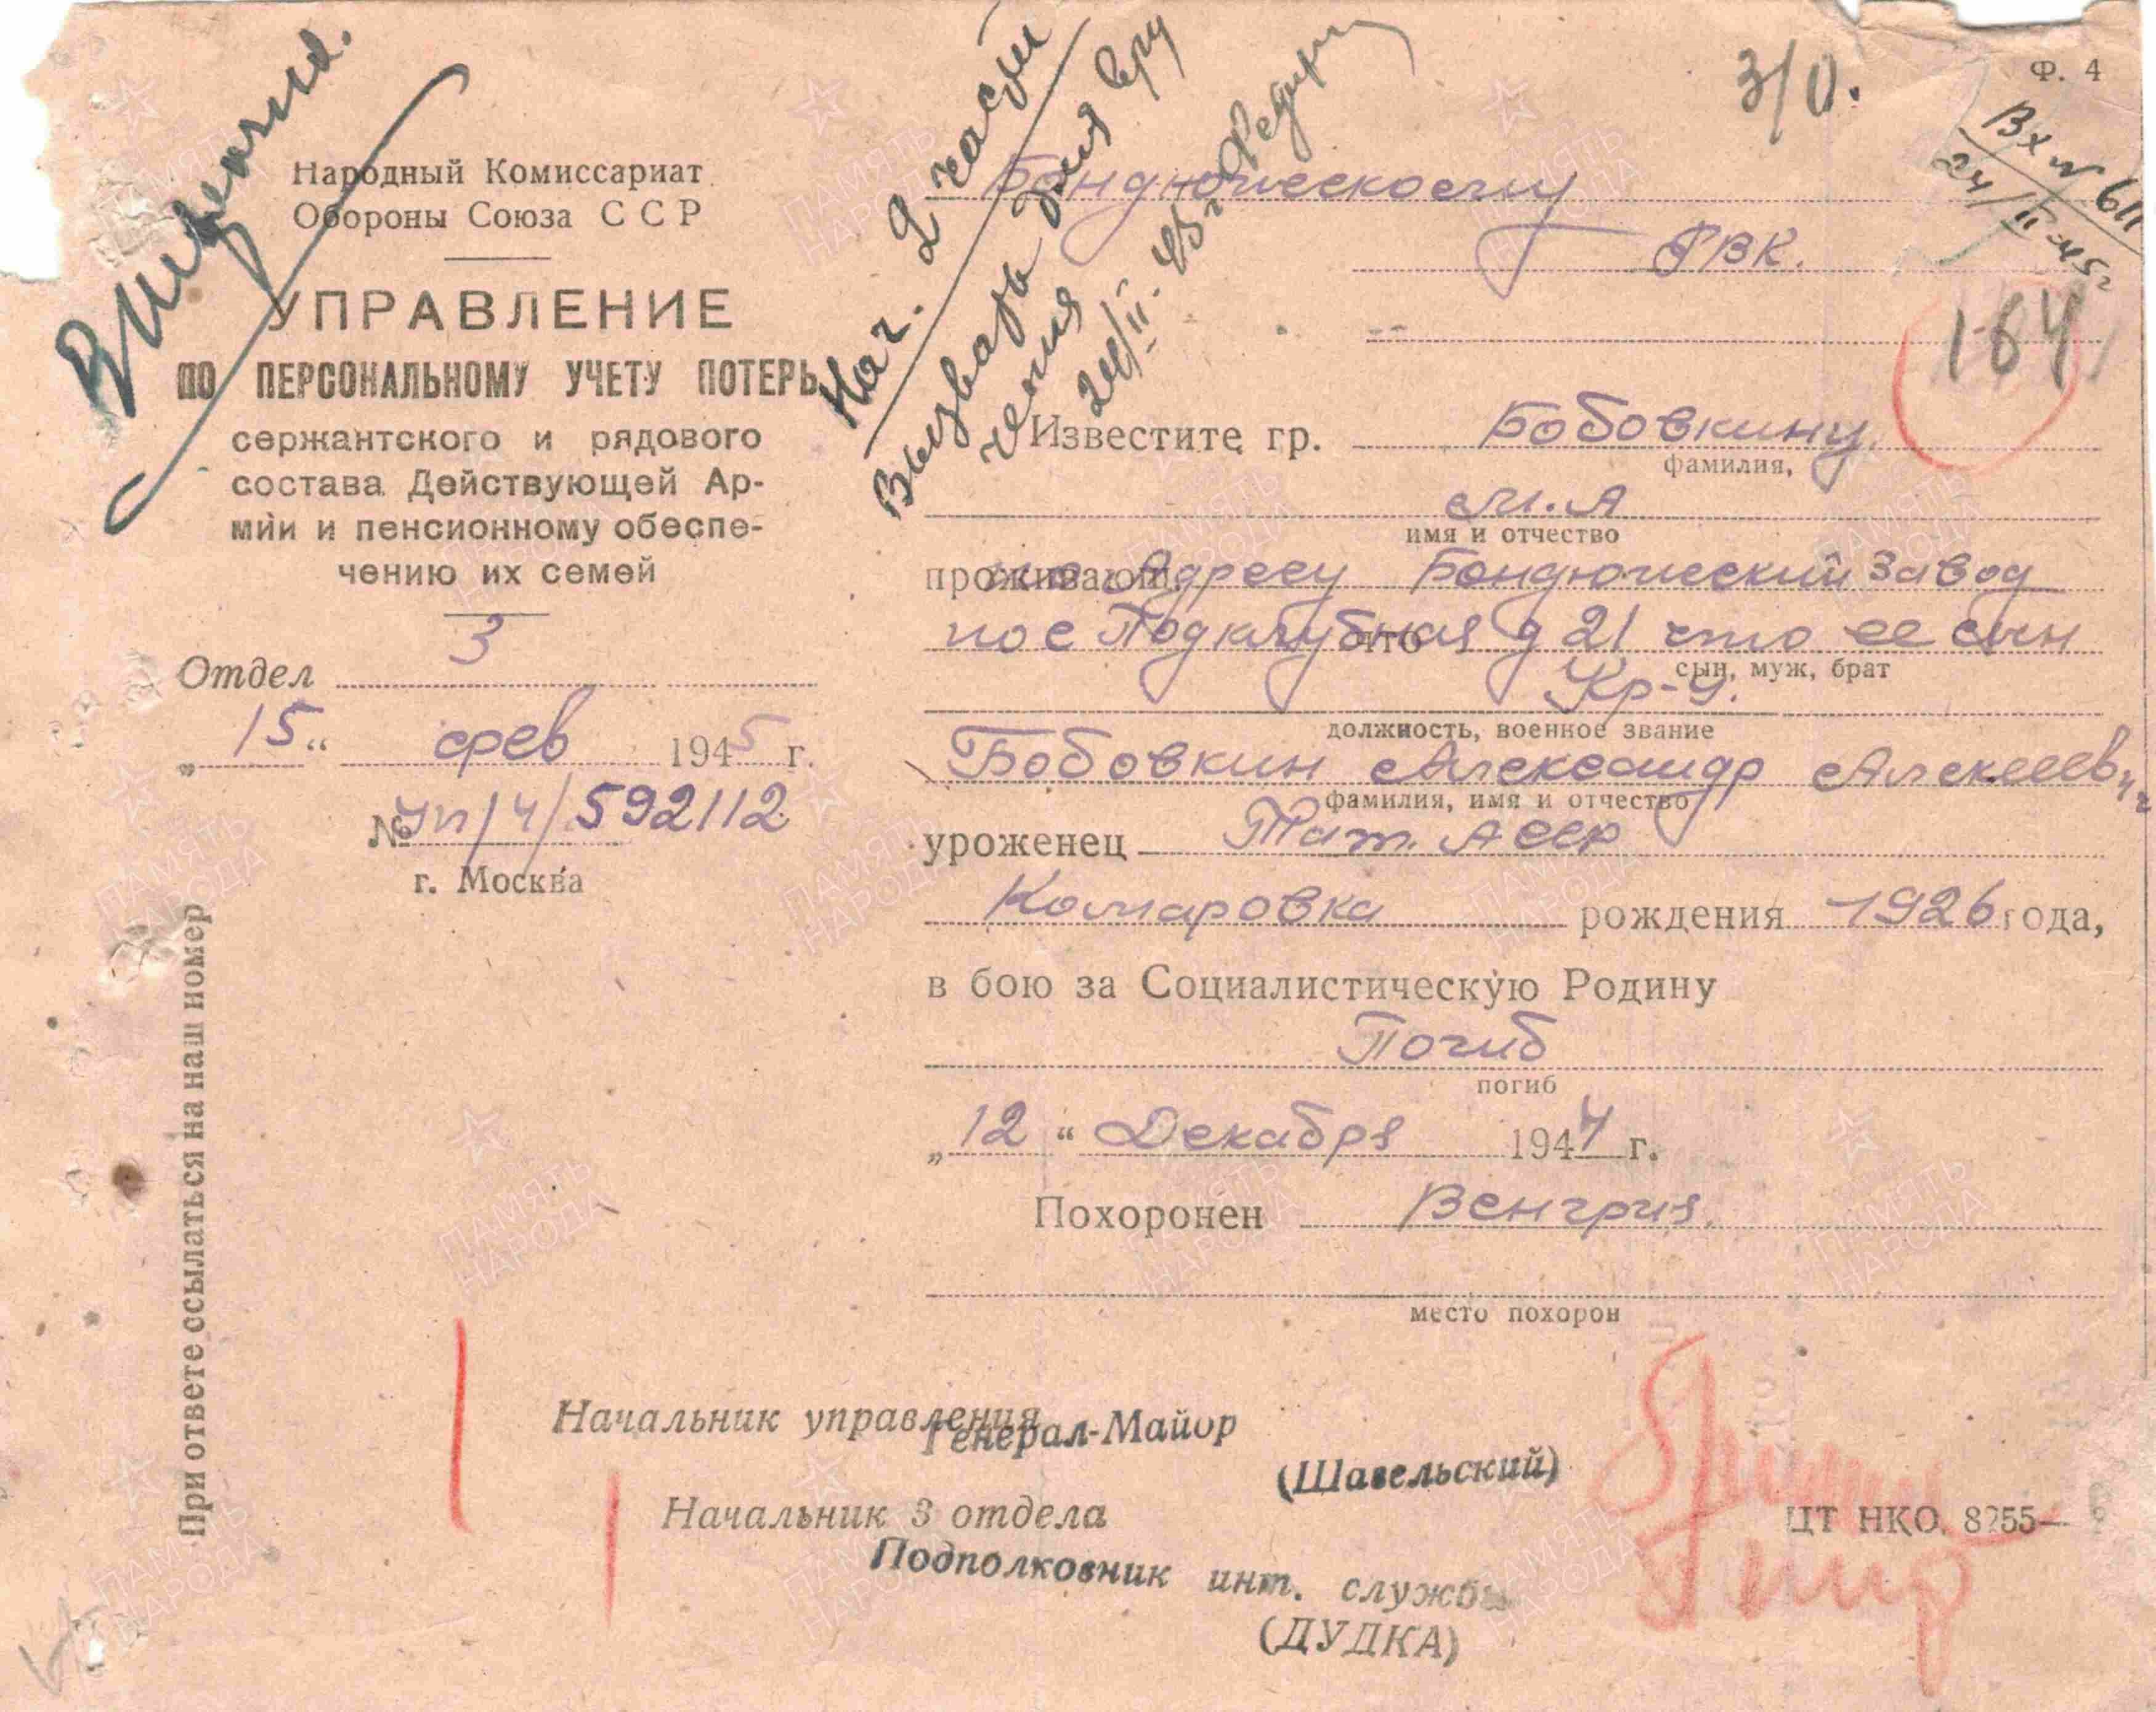 Ф. 4
З/О.
Вх № 611
24/II-45г
164
Народный Комиссариат
Обороны Союза ССР
УПРАВЛЕНИЕ
ПО ПЕРСОНАЛЬНОМУ УЧЕТУ ПОТЕРЬ
сержантского и рядового
состава Действующей Ар-
мии и пенсионному обеспе-
чению их семей
Отдел 3
„15“ фев 1945 г.
№ уп/ч/592112
г. Москва
При ответе ссылаться на наш номер
Нач. 2 части
Вызвать для вру
чения
24/II-45г
Бондюжескому
РВК.
Известите гр. Бобовкину
фамилия,
М.А
имя и отчество
проживающ. по Адресу Бондюжеский завод
пос Подклубная д 21 что ее сын
сын, муж, брат
Кр-ц.
должность, военное звание
Бобовкин Александр Алексеевич
фамилия, имя и отчество
уроженец Тат. АССР
Комаровка рождения 1926 года,
в бою за Социалистическую Родину
Погиб
погиб
„12“ Декабря 1944 г.
Похоронен Венгрия.
место похорон
Начальник управления
Генерал-Майор
(Шавельский)
Начальник 3 отдела
Подполковник инт. службы
(ДУДКА)
ЦТ НКО. 8255—